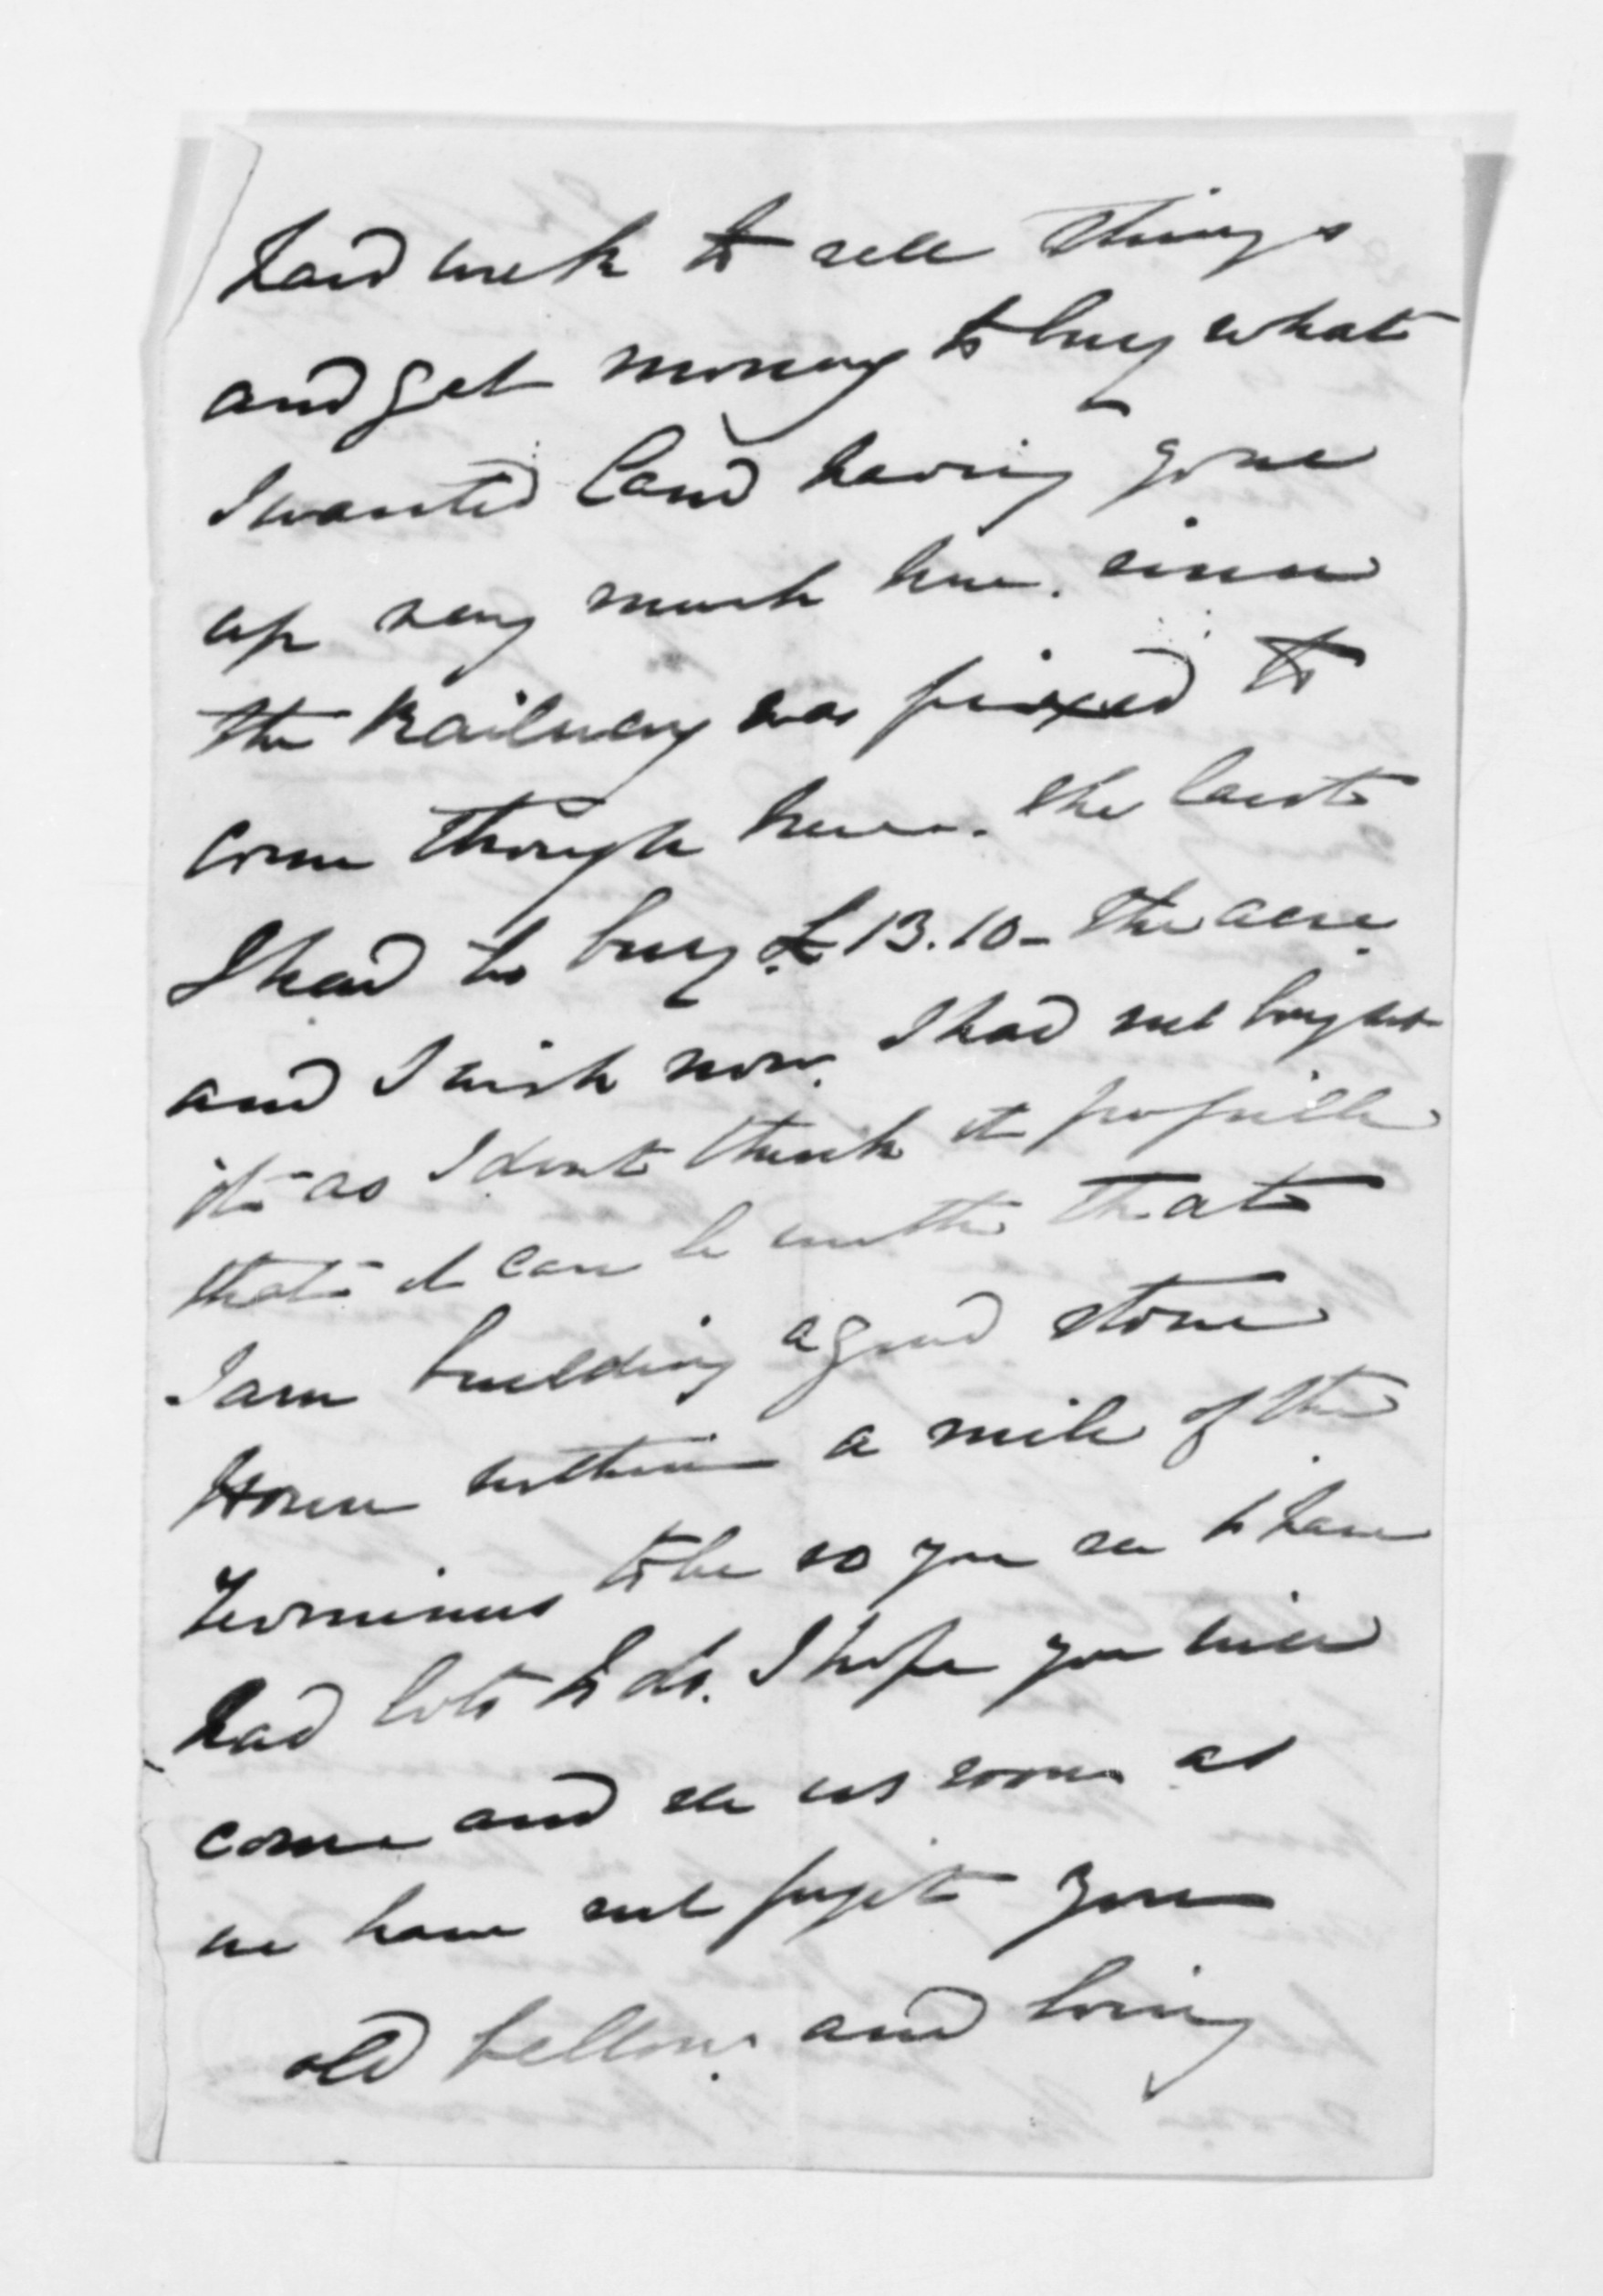 hard work to sell things
and get money to buy what
I wanted Land having gone
up very much here. since
the Railway was fixed to
come through here. the last
I had to buy £13.10- the acre
and I wish now. I had not bought
it as I dont think it possible
that it can be worth that
I am building a good stone
House within a mile of the
Terminus to be so you see I have
had lots to do. I hope you will
come and see us soon as
we have not forgot you
old fellow. and being